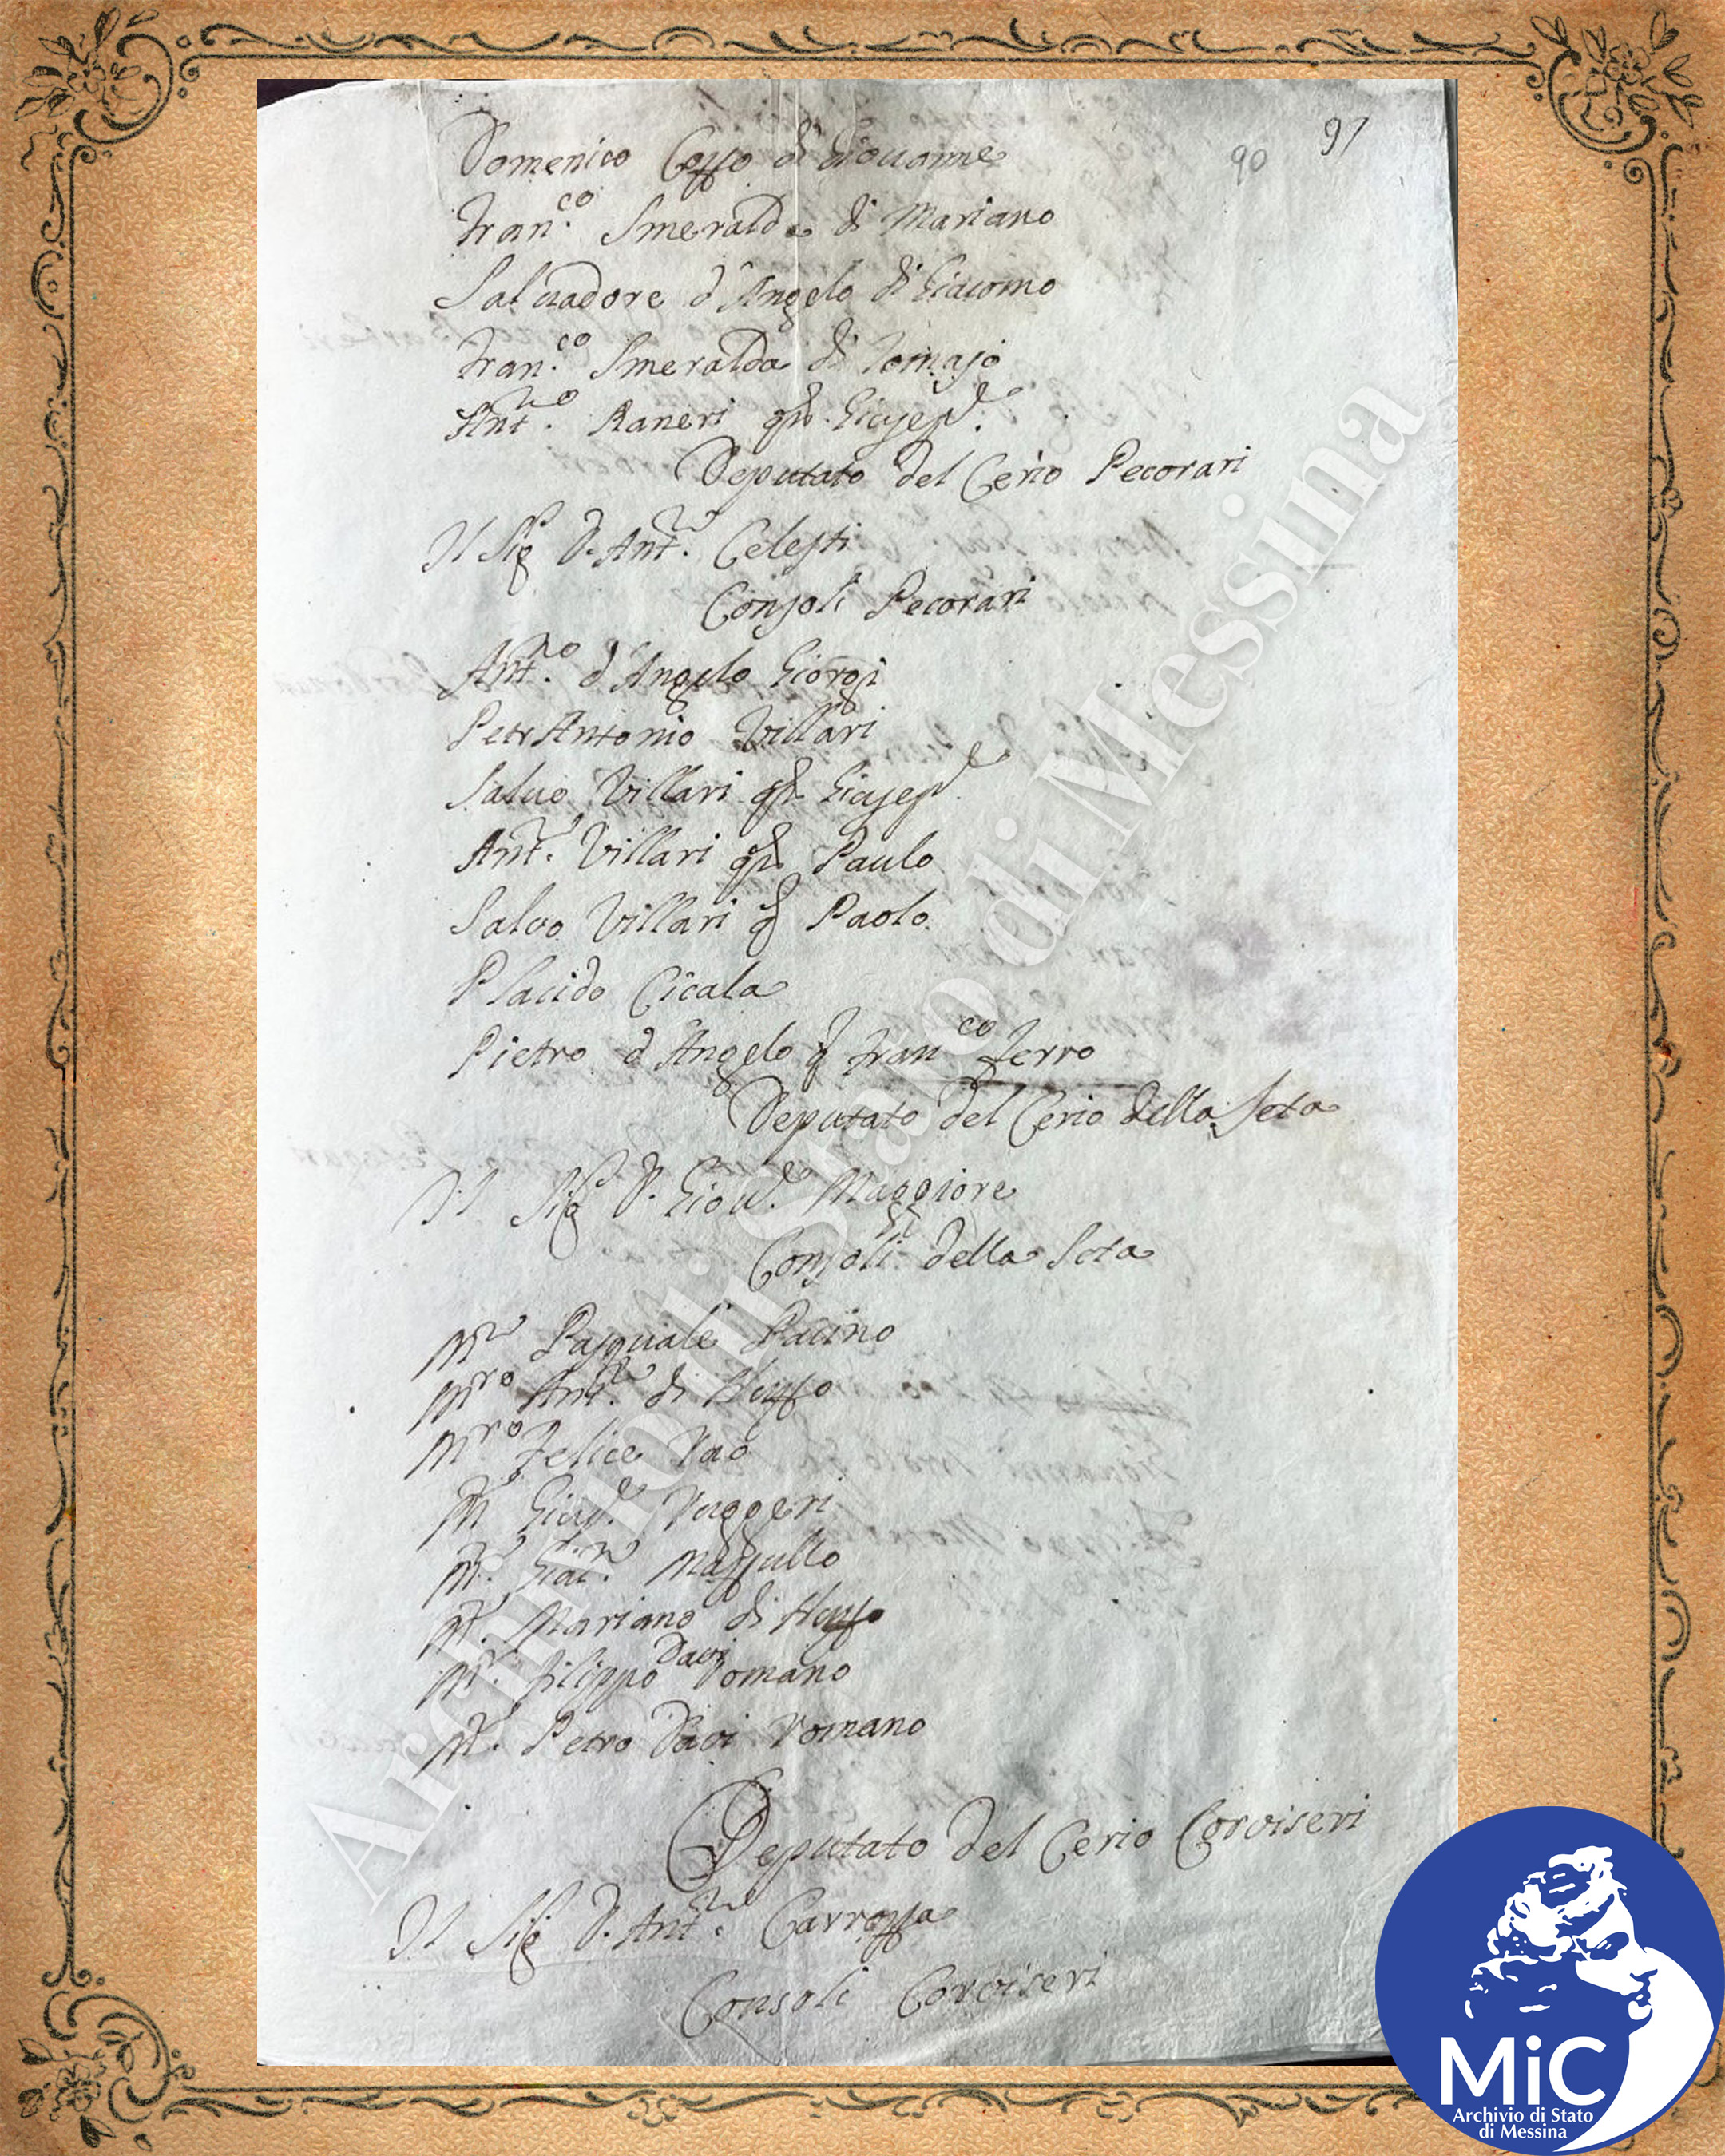 90 97
Domenico Coffo di Giouanne
Fran.co Smeralda di Mariano
Saluadore d'Angelo di Giacomo
Fran.co Smeralda di Tomaso
Ant.no Raneri qm Giusep.e
Deputato del Cerio Pecorari
Il Sig.r D. Ant.no Celesti
Consoli Pecorari
Ant.no d'Angelo Giorgi
Petr Antonio Villari
Saluo Villari qm Giusep.e
Ant.no Villari qm Paulo
Salvo Villari q Paolo
Placido Cicala
Pietro d'Angelo q Fran.co Ferro
Deputato del Cerio della Seta
Il Sig.r D. Giou.e Maggiore
Consoli della Seta
M.ro Pasquale Pacino
M.ro Ant.no di
M.ro Felice Rao
M. Gius.e Ruggeri
M.
M. Mariano di
M.ro Filippo Davi Romano
M. Petro Davi Romano
Deputato del Cerio Corviseri
Il Sig.r D. Ant.no
Consoli Corviseri
Archivio di Stato di Messina
MiC
Archivio di Stato
di Messina